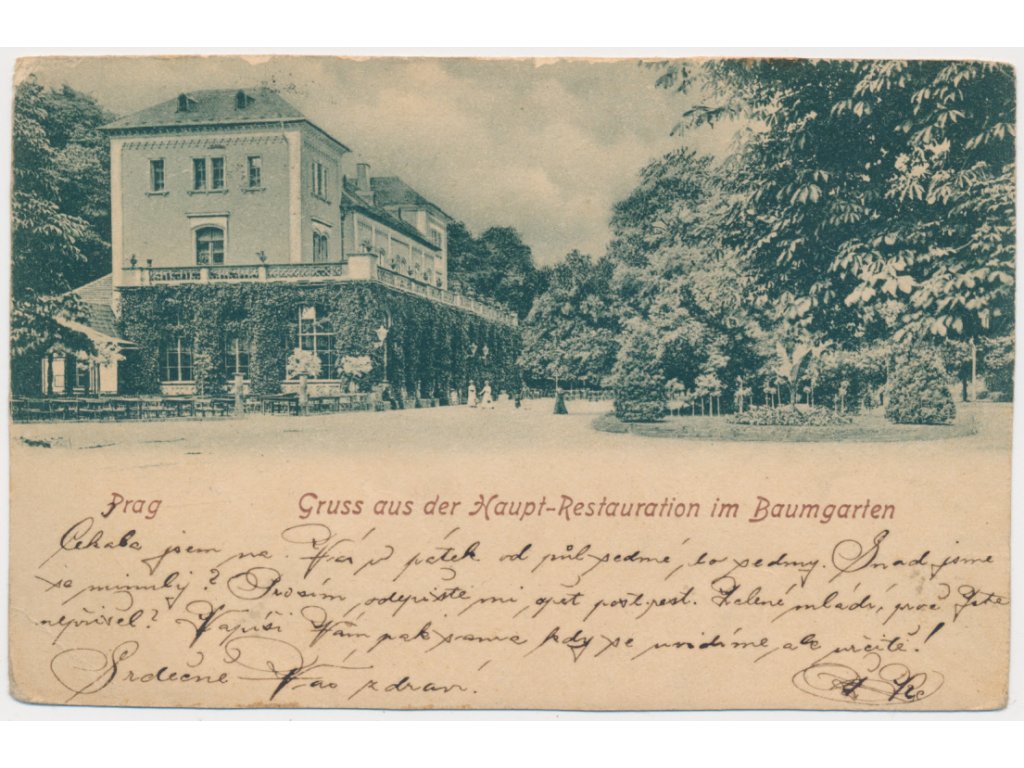 Prag Gruss aus der Haupt-Restauration im Baumgarten
Čekala jsem na Vás v pátek od půl sedmé, do sedmy. Snad jsme
se minuly? Prosím, odepište mi opět post. rest. Zelené mládí, proč jste
nepřišel? Vám pak sama kdy se uvidíme, ale určitě!
Srdečně Vás zdraví.